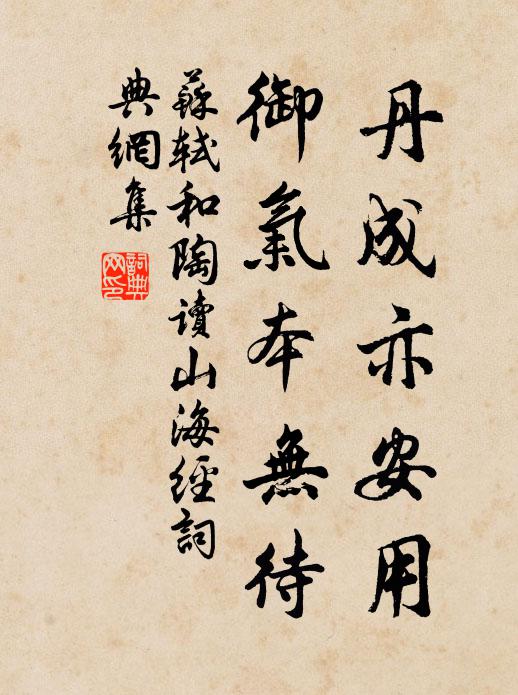 丹成亦安用
御氣本無待
蘇軾和陶讀山海經詞
典網集
詞典
网印